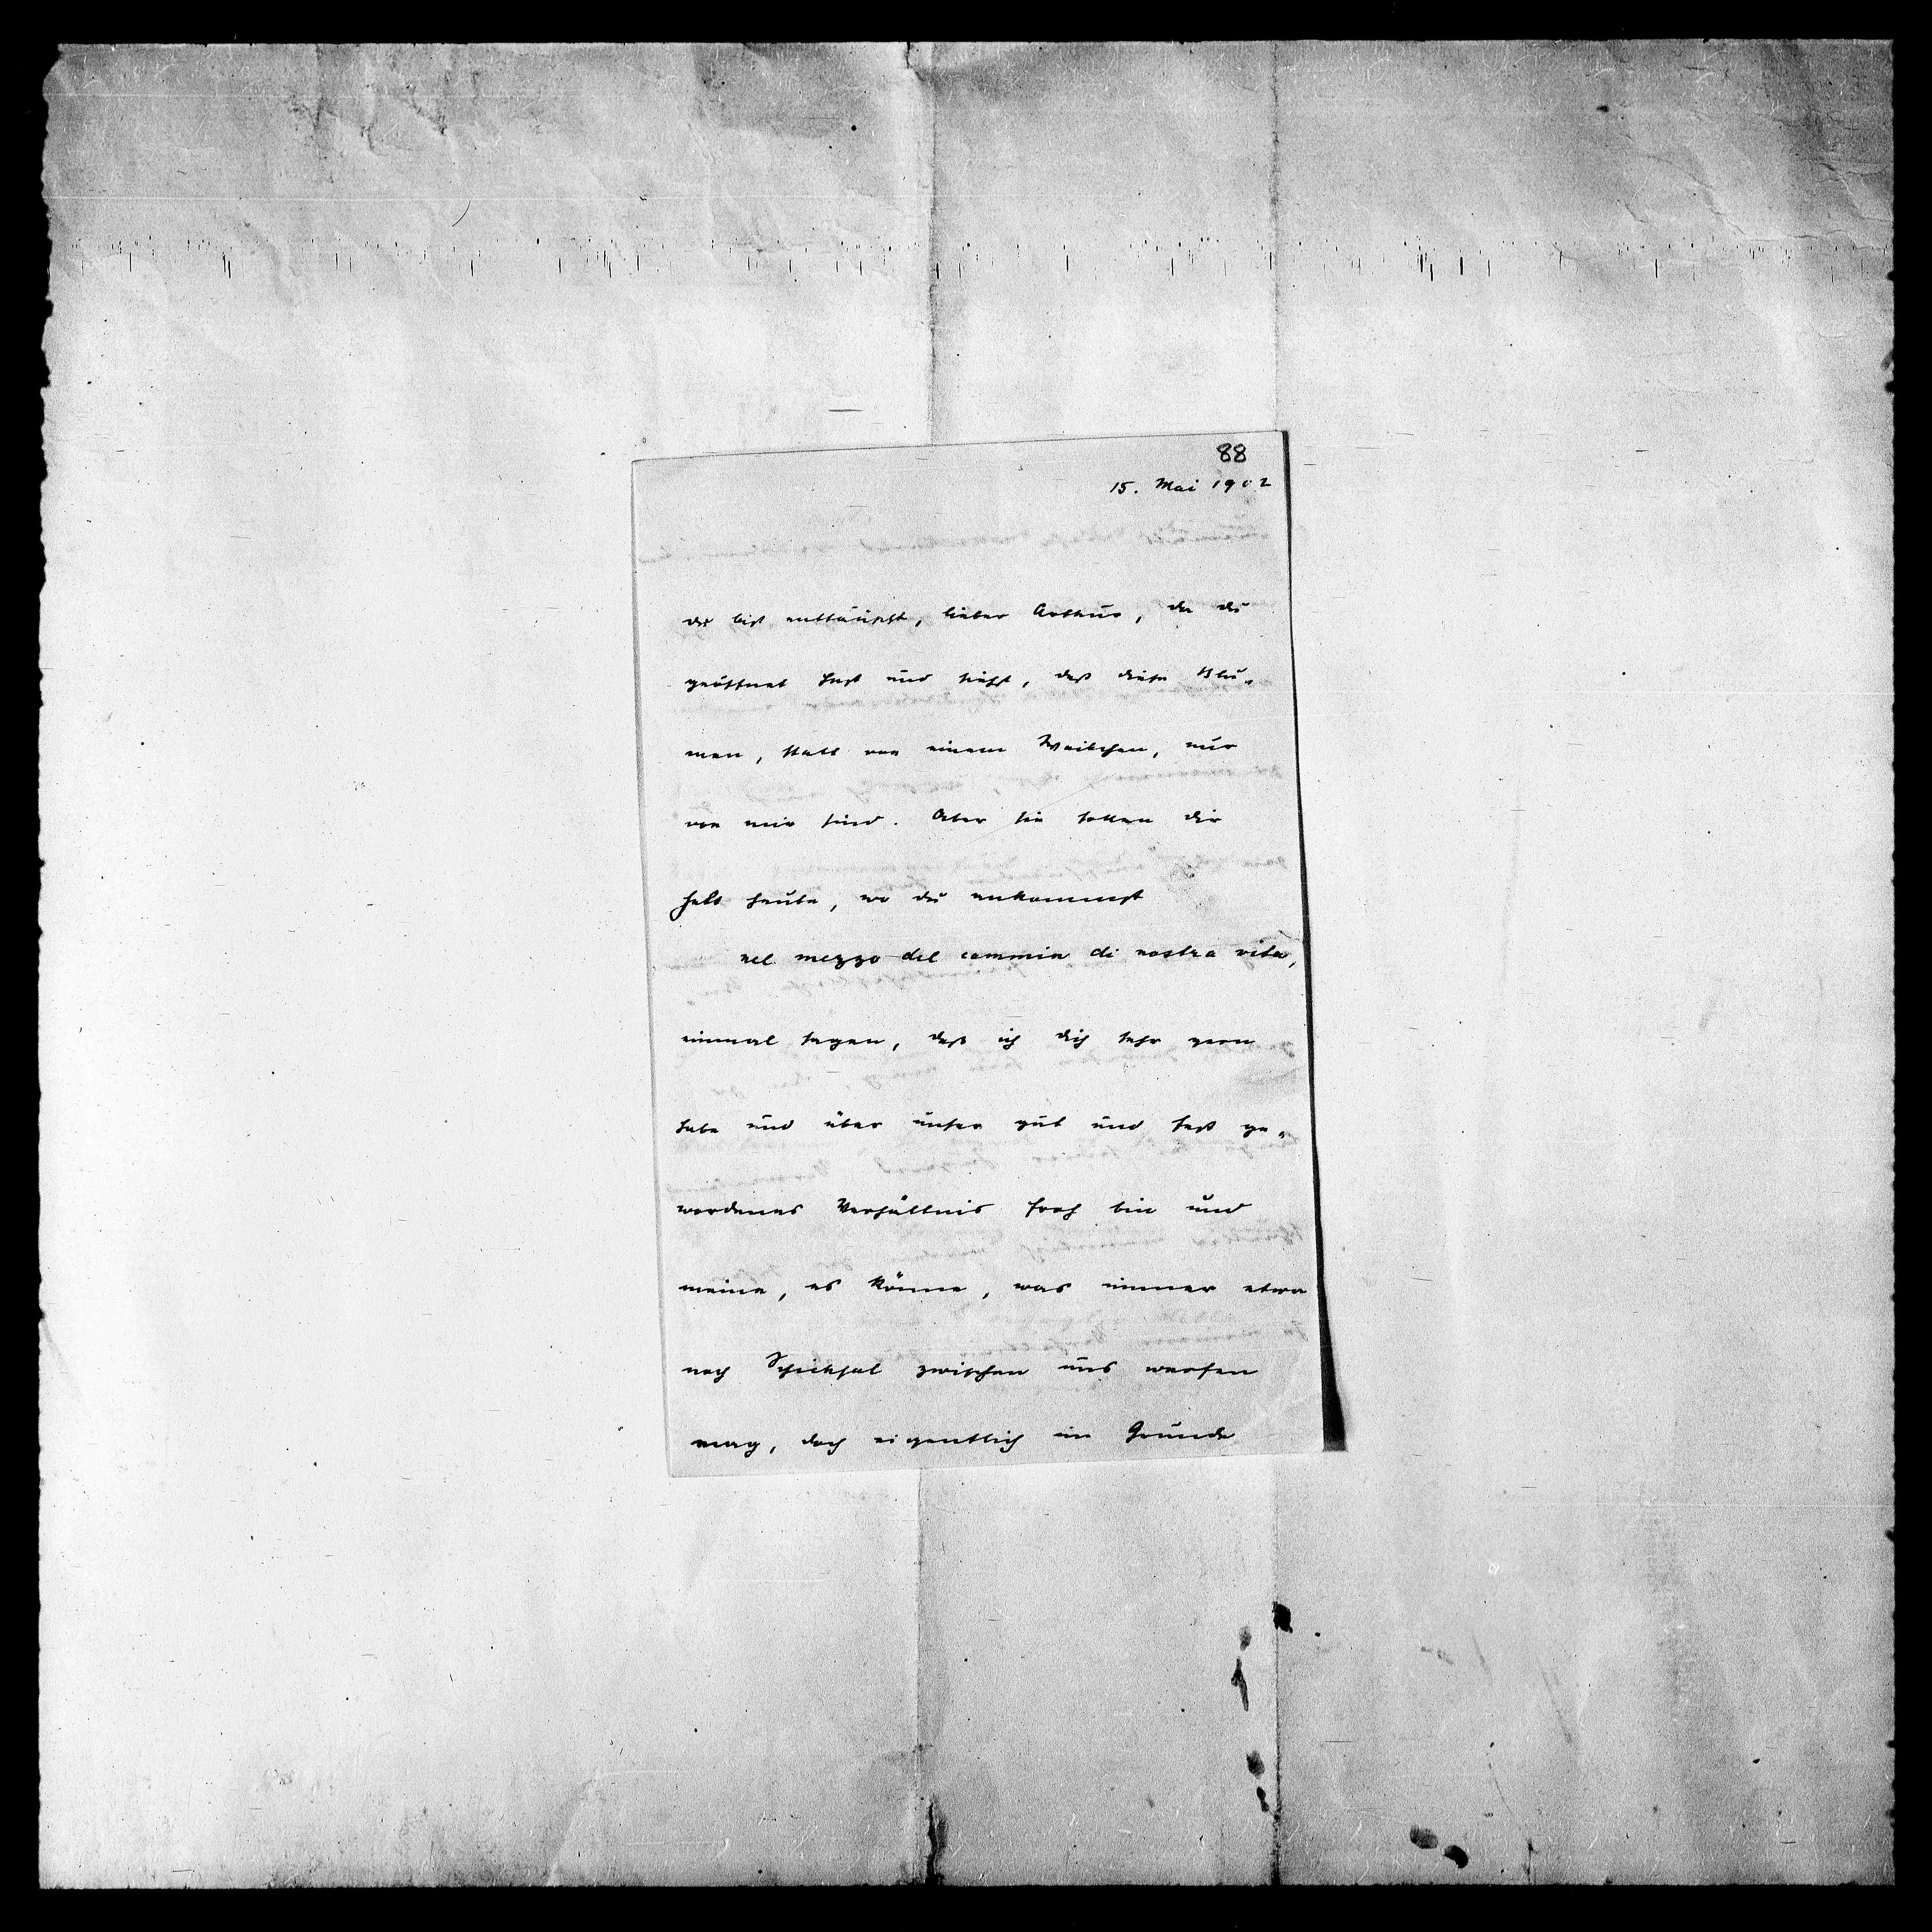 88
15. Mai 1902
du bist enttäuscht, lieber Arthur, da du
geöffnet hast und siehst, daß diese Blu-
men, statt von einem Weibchen, nur
von mir sind. Aber sie sollen dir
halt heute, wo du ankommst
nel mezzo del cammin di nostra vita,
einmal sagen, daß ich dich sehr gern
habe und über unser gut und fest ge-
wordenes Verhältnis froh bin und
meine, es könne, was immer etwa
noch Schicksal zwischen uns werfen
mag, doch eigentlich im Grunde